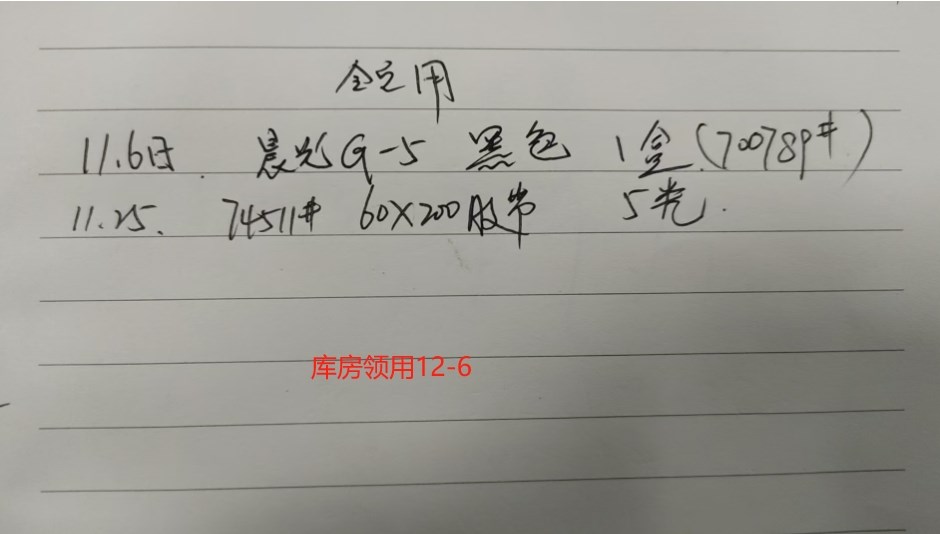 仓之用
11.6日. 晨光G-5 黑色 1盒(700789#)
11.25. 74511# 60X200胶带 5卷.
库房领用12-6